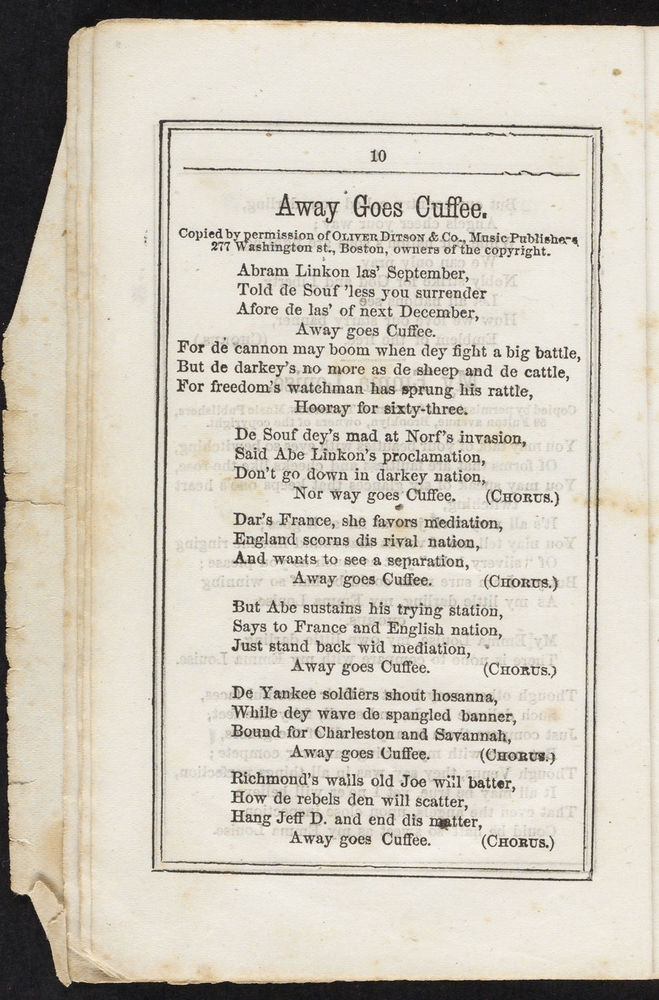 10
Away Goes Cuffee.
Copied by permission of OLIVER DITSON & Co., Music Publishers
277 Washington st., Boston, owners of the copyright.
Abram Linkon las' September,
Told de Souf 'less you surrender
Afore de las' of next December,
Away goes Cuffee.
For de cannon may boom when dey fight a big battle,
But de darkey's no more as de sheep and de cattle,
For freedom's watchman has sprung his rattle,
Hooray for sixty-three.
De Souf dey's mad at Norf's invasion,
Said Abe Linkon's proclamation,
Don't go down in darkey nation,
Nor way goes Cuffee. (CHORUS.)
Dar's France, she favors mediation,
England scorns dis rival nation,
And wants to see a separation,
Away goes Cuffee. (CHORUS.)
But Abe sustains his trying station,
Says to France and English nation,
Just stand back wid mediation,
Away goes Cuffee. (CHORUS.)
De Yankee soldiers shout hosanna,
While dey wave de spangled banner,
Bound for Charleston and Savannah,
Away goes Cuffee. (CHORUS.)
Richmond's walls old Joe will batter,
How de rebels den will scatter,
Hang Jeff D. and end dis matter,
Away goes Cuffee. (CHORUS.)